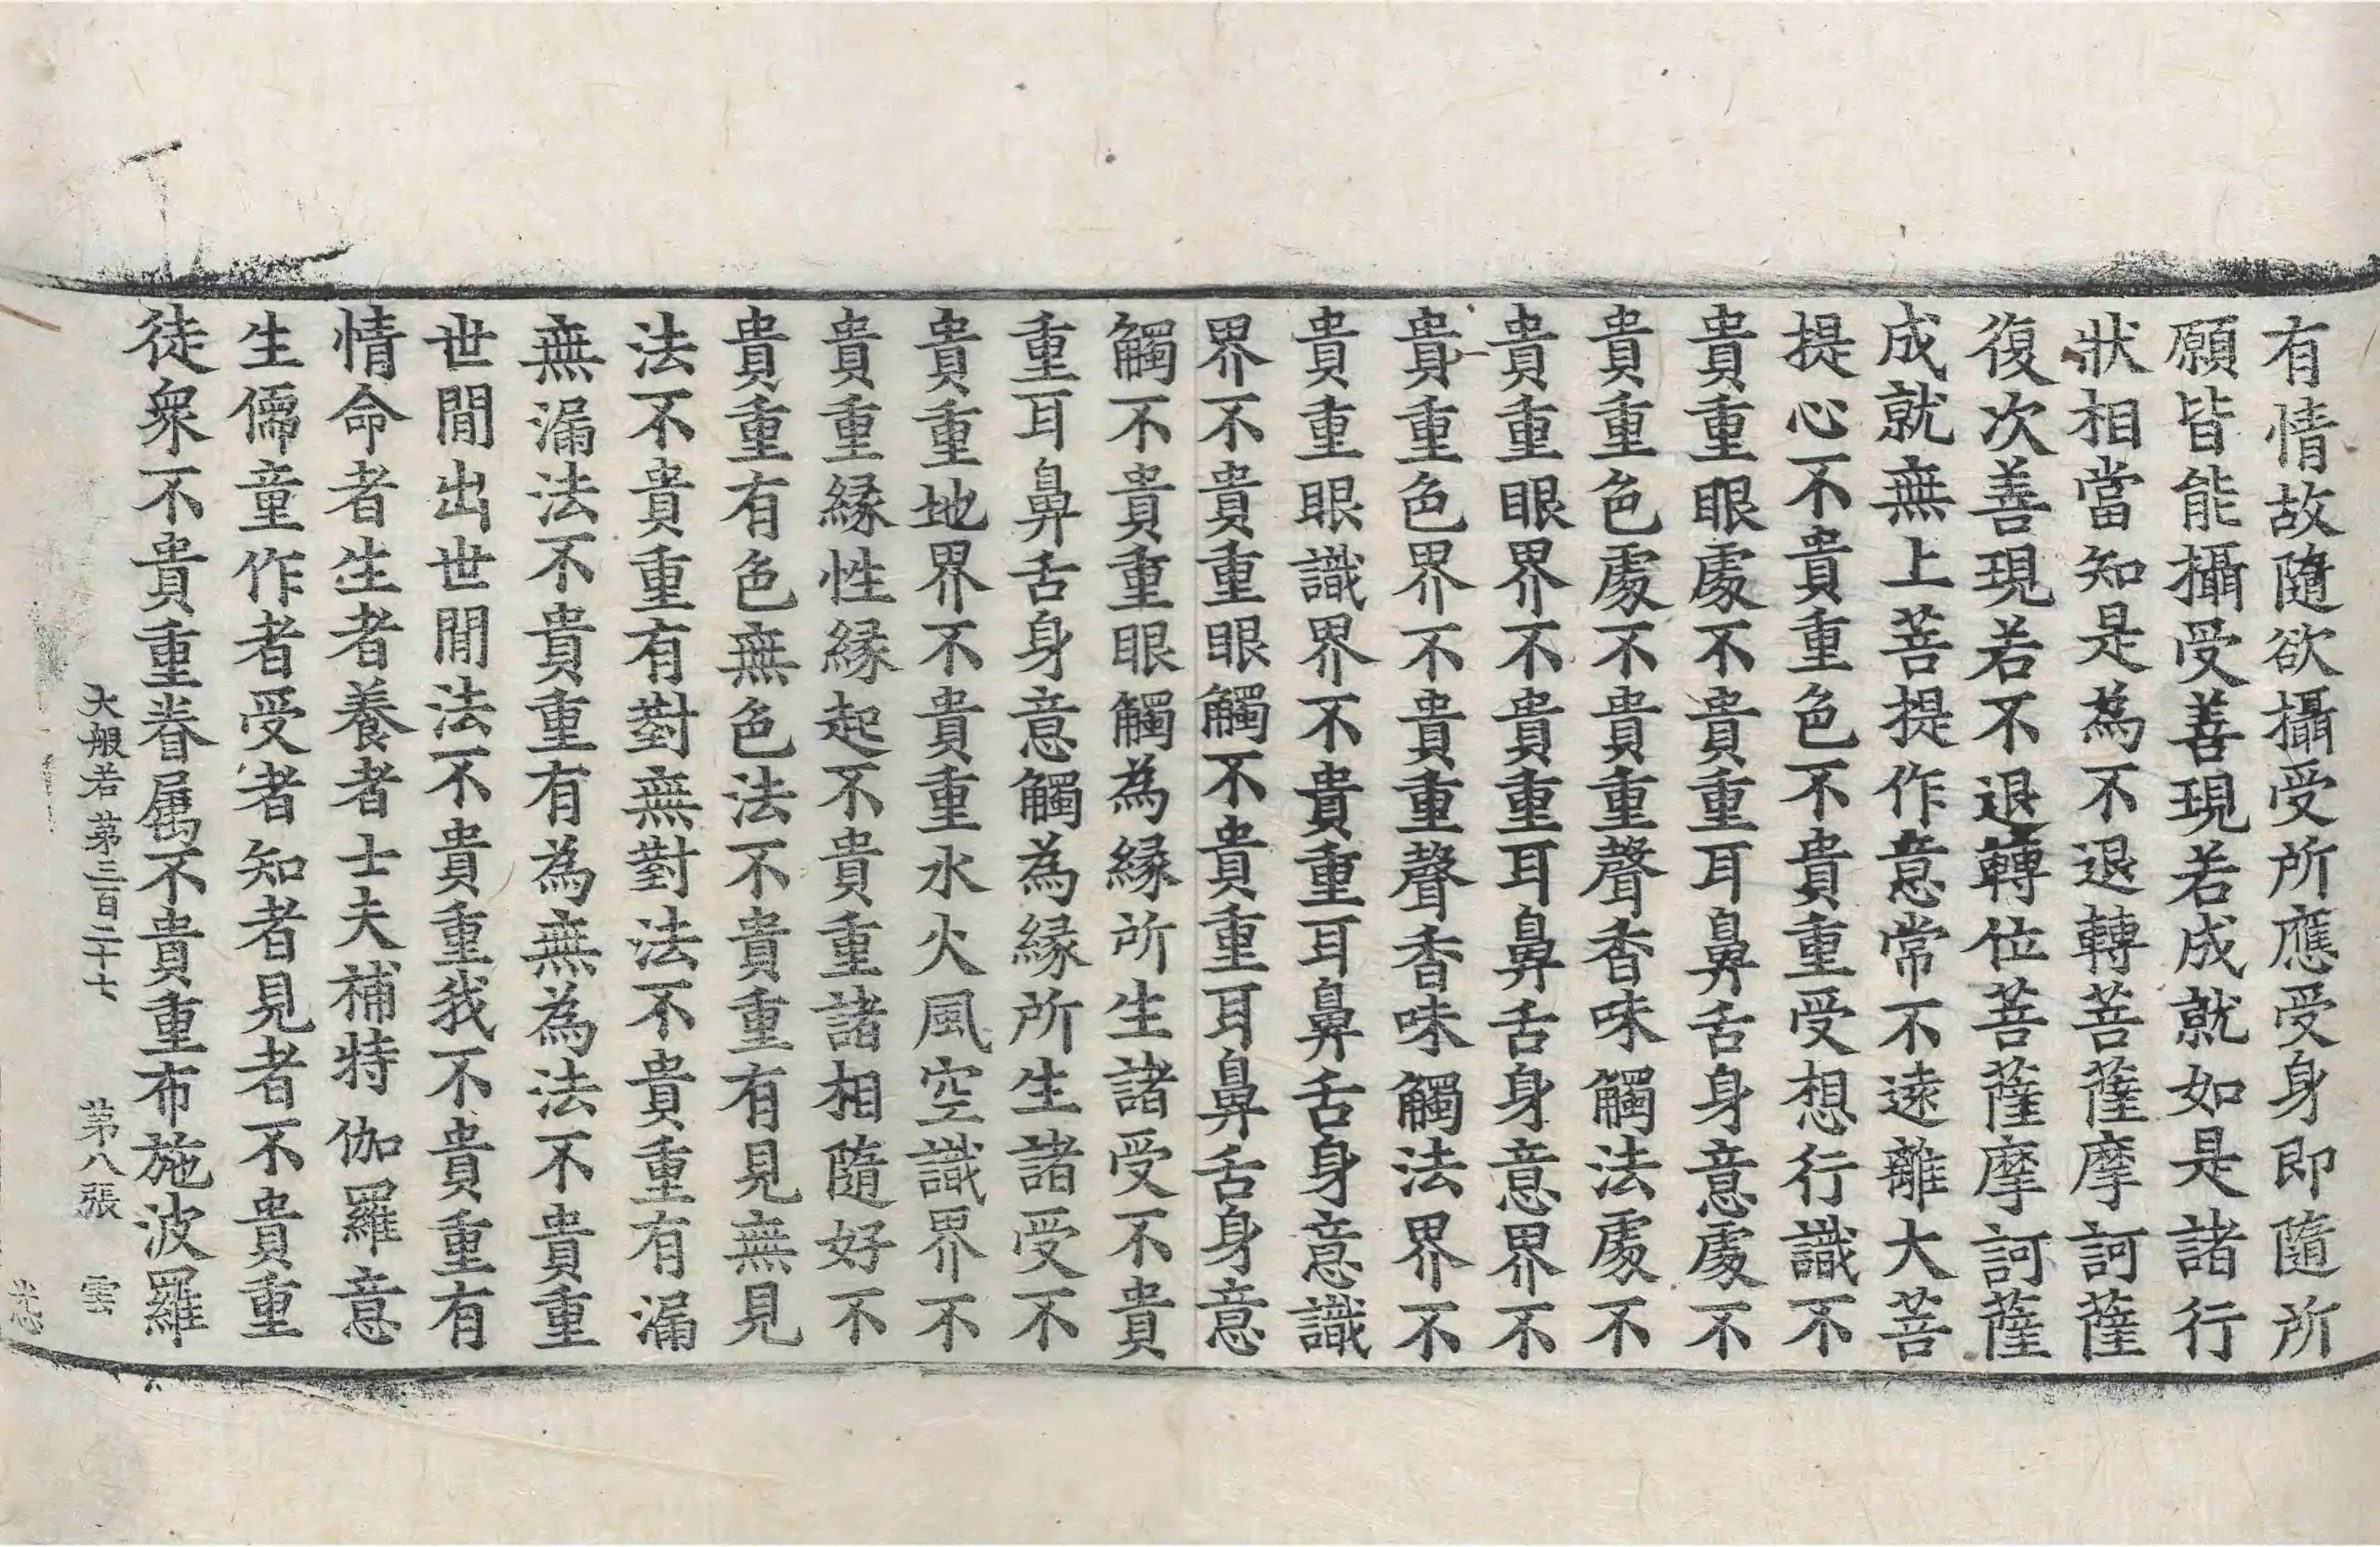 有情故隨欲攝受所應受身即隨所
願皆能攝受善現若成就如是諸行
狀相當知是為不退轉菩薩摩訶薩
復次善現若不退轉位菩薩摩訶薩
成就無上菩提作意常不遠離大菩
提心不貴重色不貴重受想行識不
貴重眼處不貴重耳鼻舌身意處不
貴重色處不貴重聲香味觸法處不
貴重眼界不貴重耳鼻舌身意界不
貴重色界不貴重聲香味觸法界不
貴重眼識界不貴重耳鼻舌身意識
界不貴重眼觸不貴重耳鼻舌身意
觸不貴重眼觸為緣所生諸受不貴
重耳鼻舌身意觸為緣所生諸受不
貴重地界不貴重水火風空識界不
貴重緣性緣起不貴重諸相隨好不
貴重有色無色法不貴重有見無見
法不貴重有對無對法不貴重有漏
無漏法不貴重有為無為法不貴重
世間出世間法不貴重我不貴重有
情命者生者養者士夫補特伽羅意
生儒童作者受者知者見者不貴重
徒衆不貴重眷屬不貴重布施波羅
大般若第三百二十七 第八張 雲